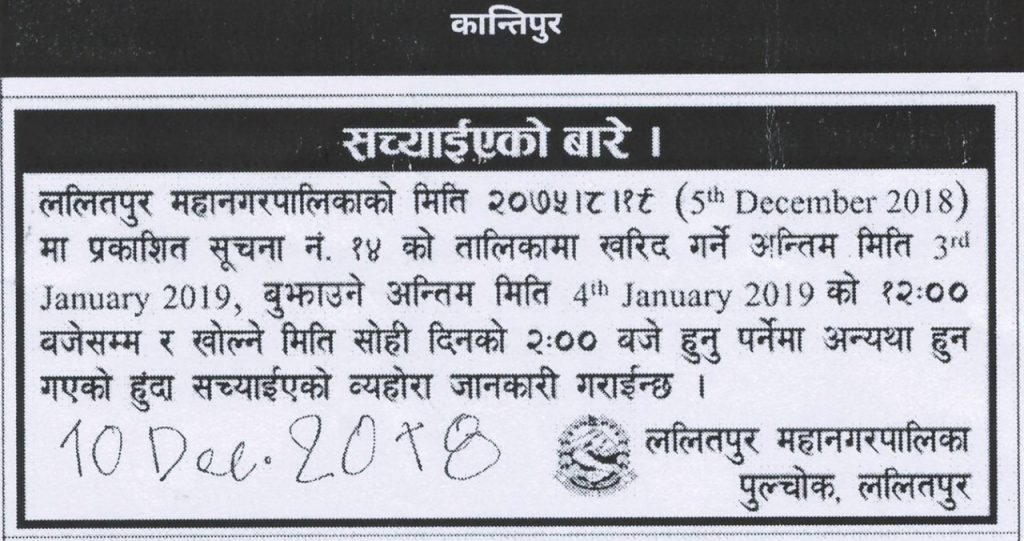 कान्तिपुर
सच्याईएको बारे ।
ललितपुर महानगरपालिकाको मिति २०७५।८।१९ (5th December 2018)
मा प्रकाशित सूचना नं. १४ को तालिकामा खरिद गर्ने अन्तिम मिति 3rd
January 2019, बुझाउने अन्तिम मिति 4th January 2019 को १२:००
बजेसम्म र खोल्ने मिति सोही दिनको २:०० बजे हुनु पर्नेमा अन्यथा हुन
गएको हुंदा सच्याईएको व्यहोरा जानकारी गराईन्छ ।
10 Dec. 2018
ललितपुर महानगरपालिका
पुल्चोक, ललितपुर